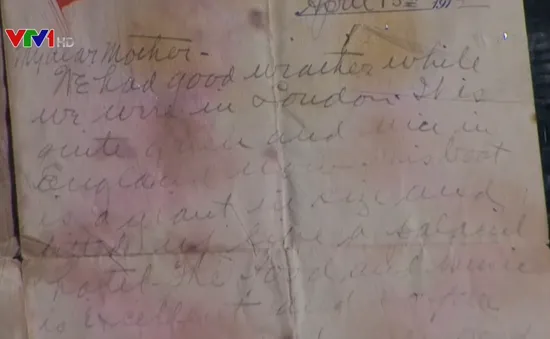 VTV1 HD
April 13th 191
My dear Mother -
We had good weather while
we were in London. It is
quite green and nice in
England now. This boat
is a giant in size and
up like a palacial
hotel. The food and music
is excellent and